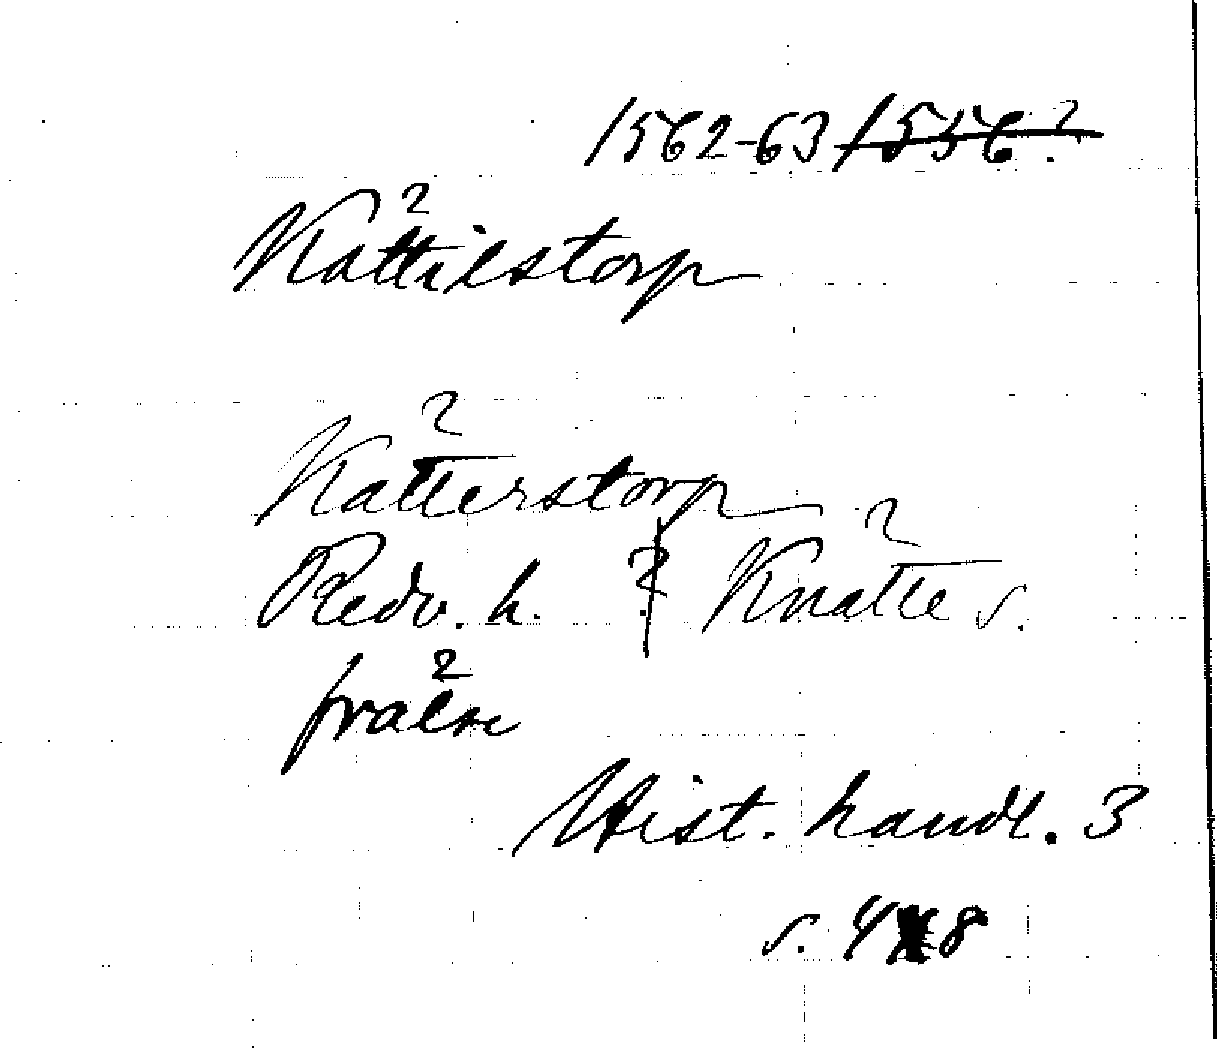 1562-63 1556?
2
Kattilstorp
2
Katterstorp
2
Redv. h. ? Knätte s.
2
frälse
Hist. handl. 3
s. 48